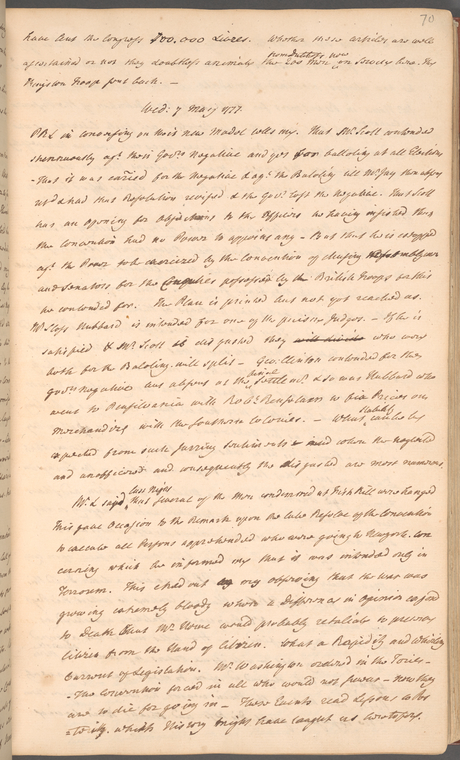 70
have lent the Congress 800.000 Livres. Whether these articles are well
ascertained or not they doubtless animate the 200 men on Society here. The
from Dutchess, now
Kingston Troop sent back. —
Wed: 7 May 1777.
PRL in conversing on their new Model tells me, That Mr Scott contended
strenuously agt. their Govrs Negative and yet for balloting at all Elections
– That it was carried for the Negative & agt. the Baloting till Mr Jay then
used & had that Resolution revised & the Govr lost the Negative. That Scott
has an opening for objections to the Officers he having insisted that
the Convention had no Power to appoint any – But that he is estopped
agt. the Power to be exercised by the Convention of chusing Assemblymen
and Senators for the Counties possessed by the British Troops for this
he contended for. The Plan is printed but not yet reached us.
Mr Hubbard is intended for one of the Judges. – If he is
satisfied & Mr Scott is disgusted they will divide who were
both for the Baloting will split – Geo. Clinton contended for the
Govrs Negative but was at the Settlemt. & so was Hubbard who
denial
went to Pensilvania with Robt. Rensselaer to fix Prices on
Merchandizes with the southern Colonies. – What can be
Stability
expected from such jarring and when the neglected
and unofficered and consequently the disgusted are most numerous.
Mr L said that several of the Men condemned at Fish Kill were hanged
last Night
This gave Occasion to the Remark upon the late Resolve of the Convention
to execute all Persons apprehended who were going to Newyork, con
cerning which he informed me that it was intended only in
Terrorem. This I had out only observing that the War was
growing extremely bloody where a Difference in Opinion exposed
to Death that Mr Howe would probably retaliate to preserve
Citizens from the Hand of Citizen. What a Rapidity and Whirling
Current of Legislation. Mr Washington ordered in the Tories –
– The Convention forced in all who would not swear – now they
are to die for going in – These Events read Lessons to the
World, which History might have taught us heretofore.